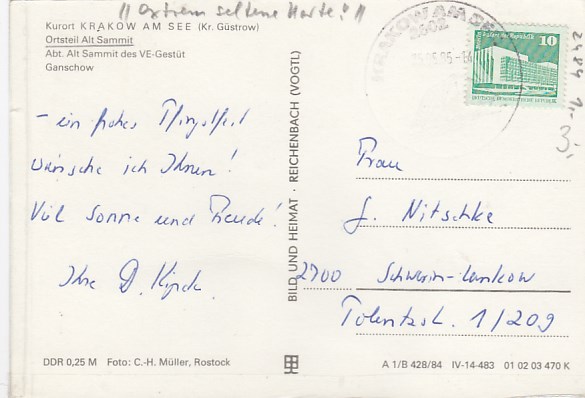 "Extrem seltene Karte!"
Kurort KRAKOW AM SEE (Kr. Güstrow)
Ortsteil Alt Sammit
Abt. Alt Sammit des VE-Gestüt
Ganschow
KRAKOW AM SEE
2602
10
2484 1,-
3,-
– ein frohes Pfingstfest
wünsche ich Ihnen!
Viel Sonne und Freude!
Ihre D.
BILD UND HEIMAT · REICHENBACH (VOGTL)
Frau
J. Nitschke
2700 Schwerin-Lankow
1/209
DDR 0,25 M Foto: C.-H. Müller, Rostock
A 1/B 428/84 IV-14-483 01 02 03 470 K